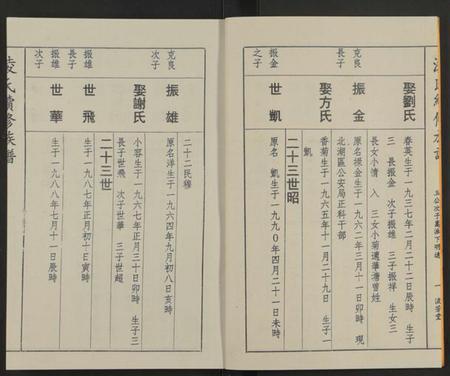 娶劉氏
春英生于一九三七年一月二十二日辰時 生子
三 長振金 次子振雄 三子振祥 生女三
長女小情 入 三女小菊適華潘曾姓
克良
長子
振金
原名振金生于一九六二年三月十一日卯時 現
北湖區公安局正科干部
娶方氏
香菊生于一九六五年十一月二十九日 生子一
凱
二十三世昭
振金
之子
世凱
原名 凱生于一九九0年四月二十一日未時
二十二民穆
克良
次子
振雄
原名洋生于一九六四年九月初八日亥時
娶謝氏
小容生于一九六七年正月三十日卯時 生子三
長子世飛 次子世華 三子世超
二十三世
振雄
長子
世飛
生于一九八七年正月初十日寅時
振雄
次子
世華
生于一九八八年七月十一日辰時
凌氏續修族譜